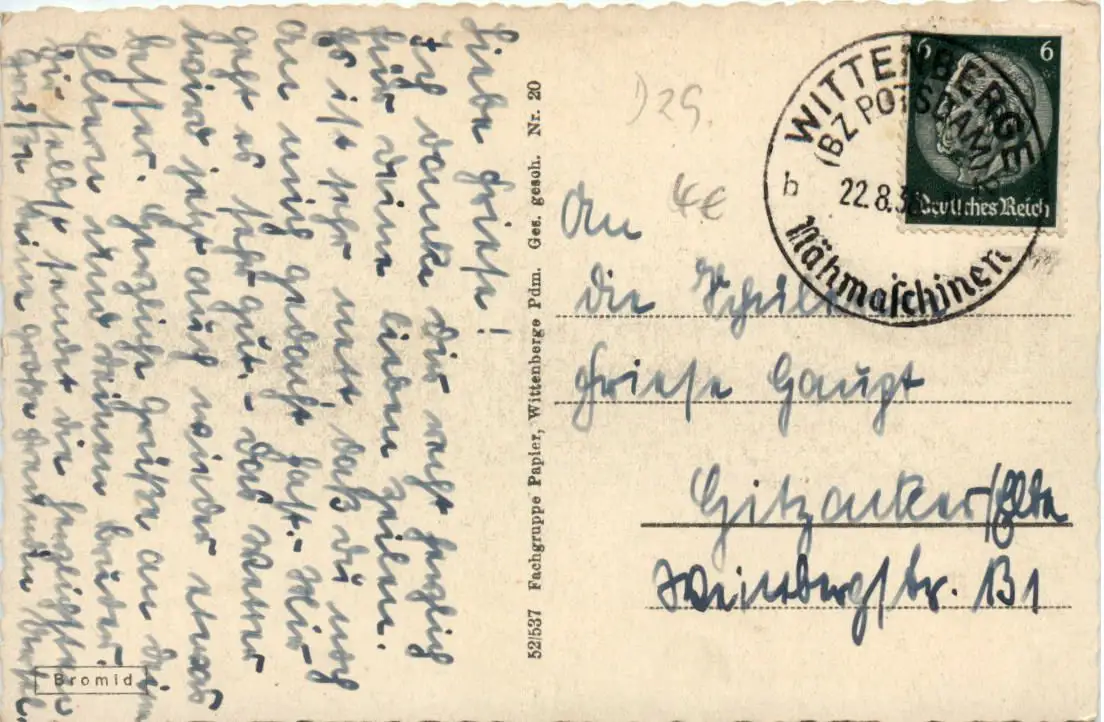 Liebe Friese!
Ich danke Dir recht herzlich
für deine lieben Zeilen.
Es ist sehr nett daß du noch
an mich gedacht hast.- Hier
geht es sehr gut.- Das Wetter
wird jetzt auch wieder etwas
besser. Herzliche Grüße an
Eltern und deinen bruder.
Dir selbst sendet die herzlichsten
Grüße deine große Freundin
Bromid
52/537 Fachgruppe Papier, Wittenberge Pdm. Ges. gesch. Nr. 20
D29.
4€
6 6
Deutsches Reich
WITTENBERGE
(BZ POTSDAM)
b 22.8.3
Nähmaschinen
An
die
Friese Haupt
Hitzacker/Elbe
Weinbergstr. 131